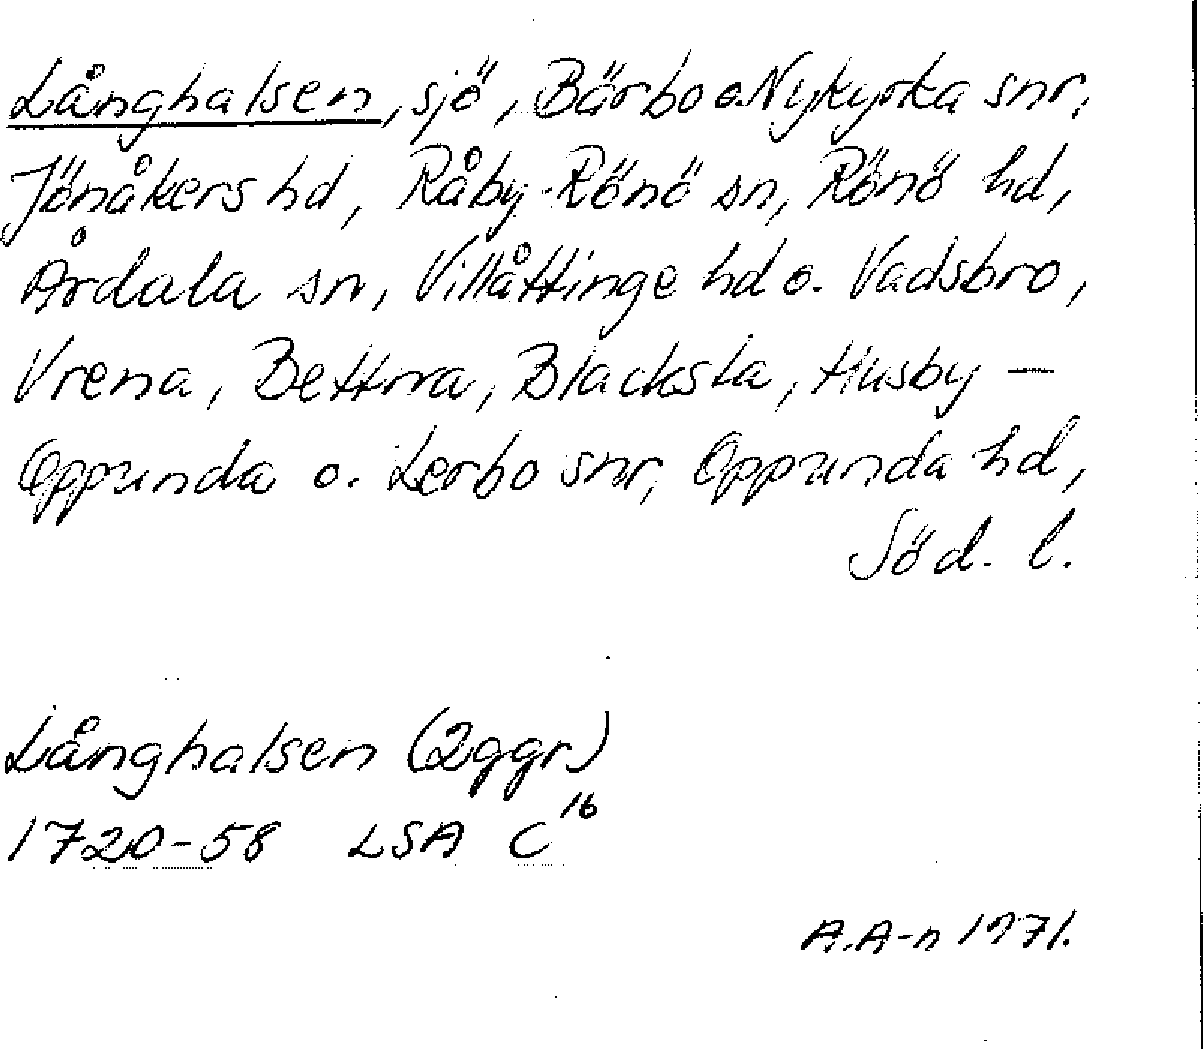 Långhalsen, sjö, Bärbo o. Nykyrka snr,
Jönåkers hd, Råby-Rönö sn, Rönö hd,
Årdala sn, Villåttinge hd o. Vadsbro,
Vrena, Bettna, Blacksta, Husby –
Oppunda o. Lerbo snr, Oppunda hd,
Söd. l.
Långhalsen (2ggr.)
1720-58 LSA C¹⁶
A.A-n 1971.